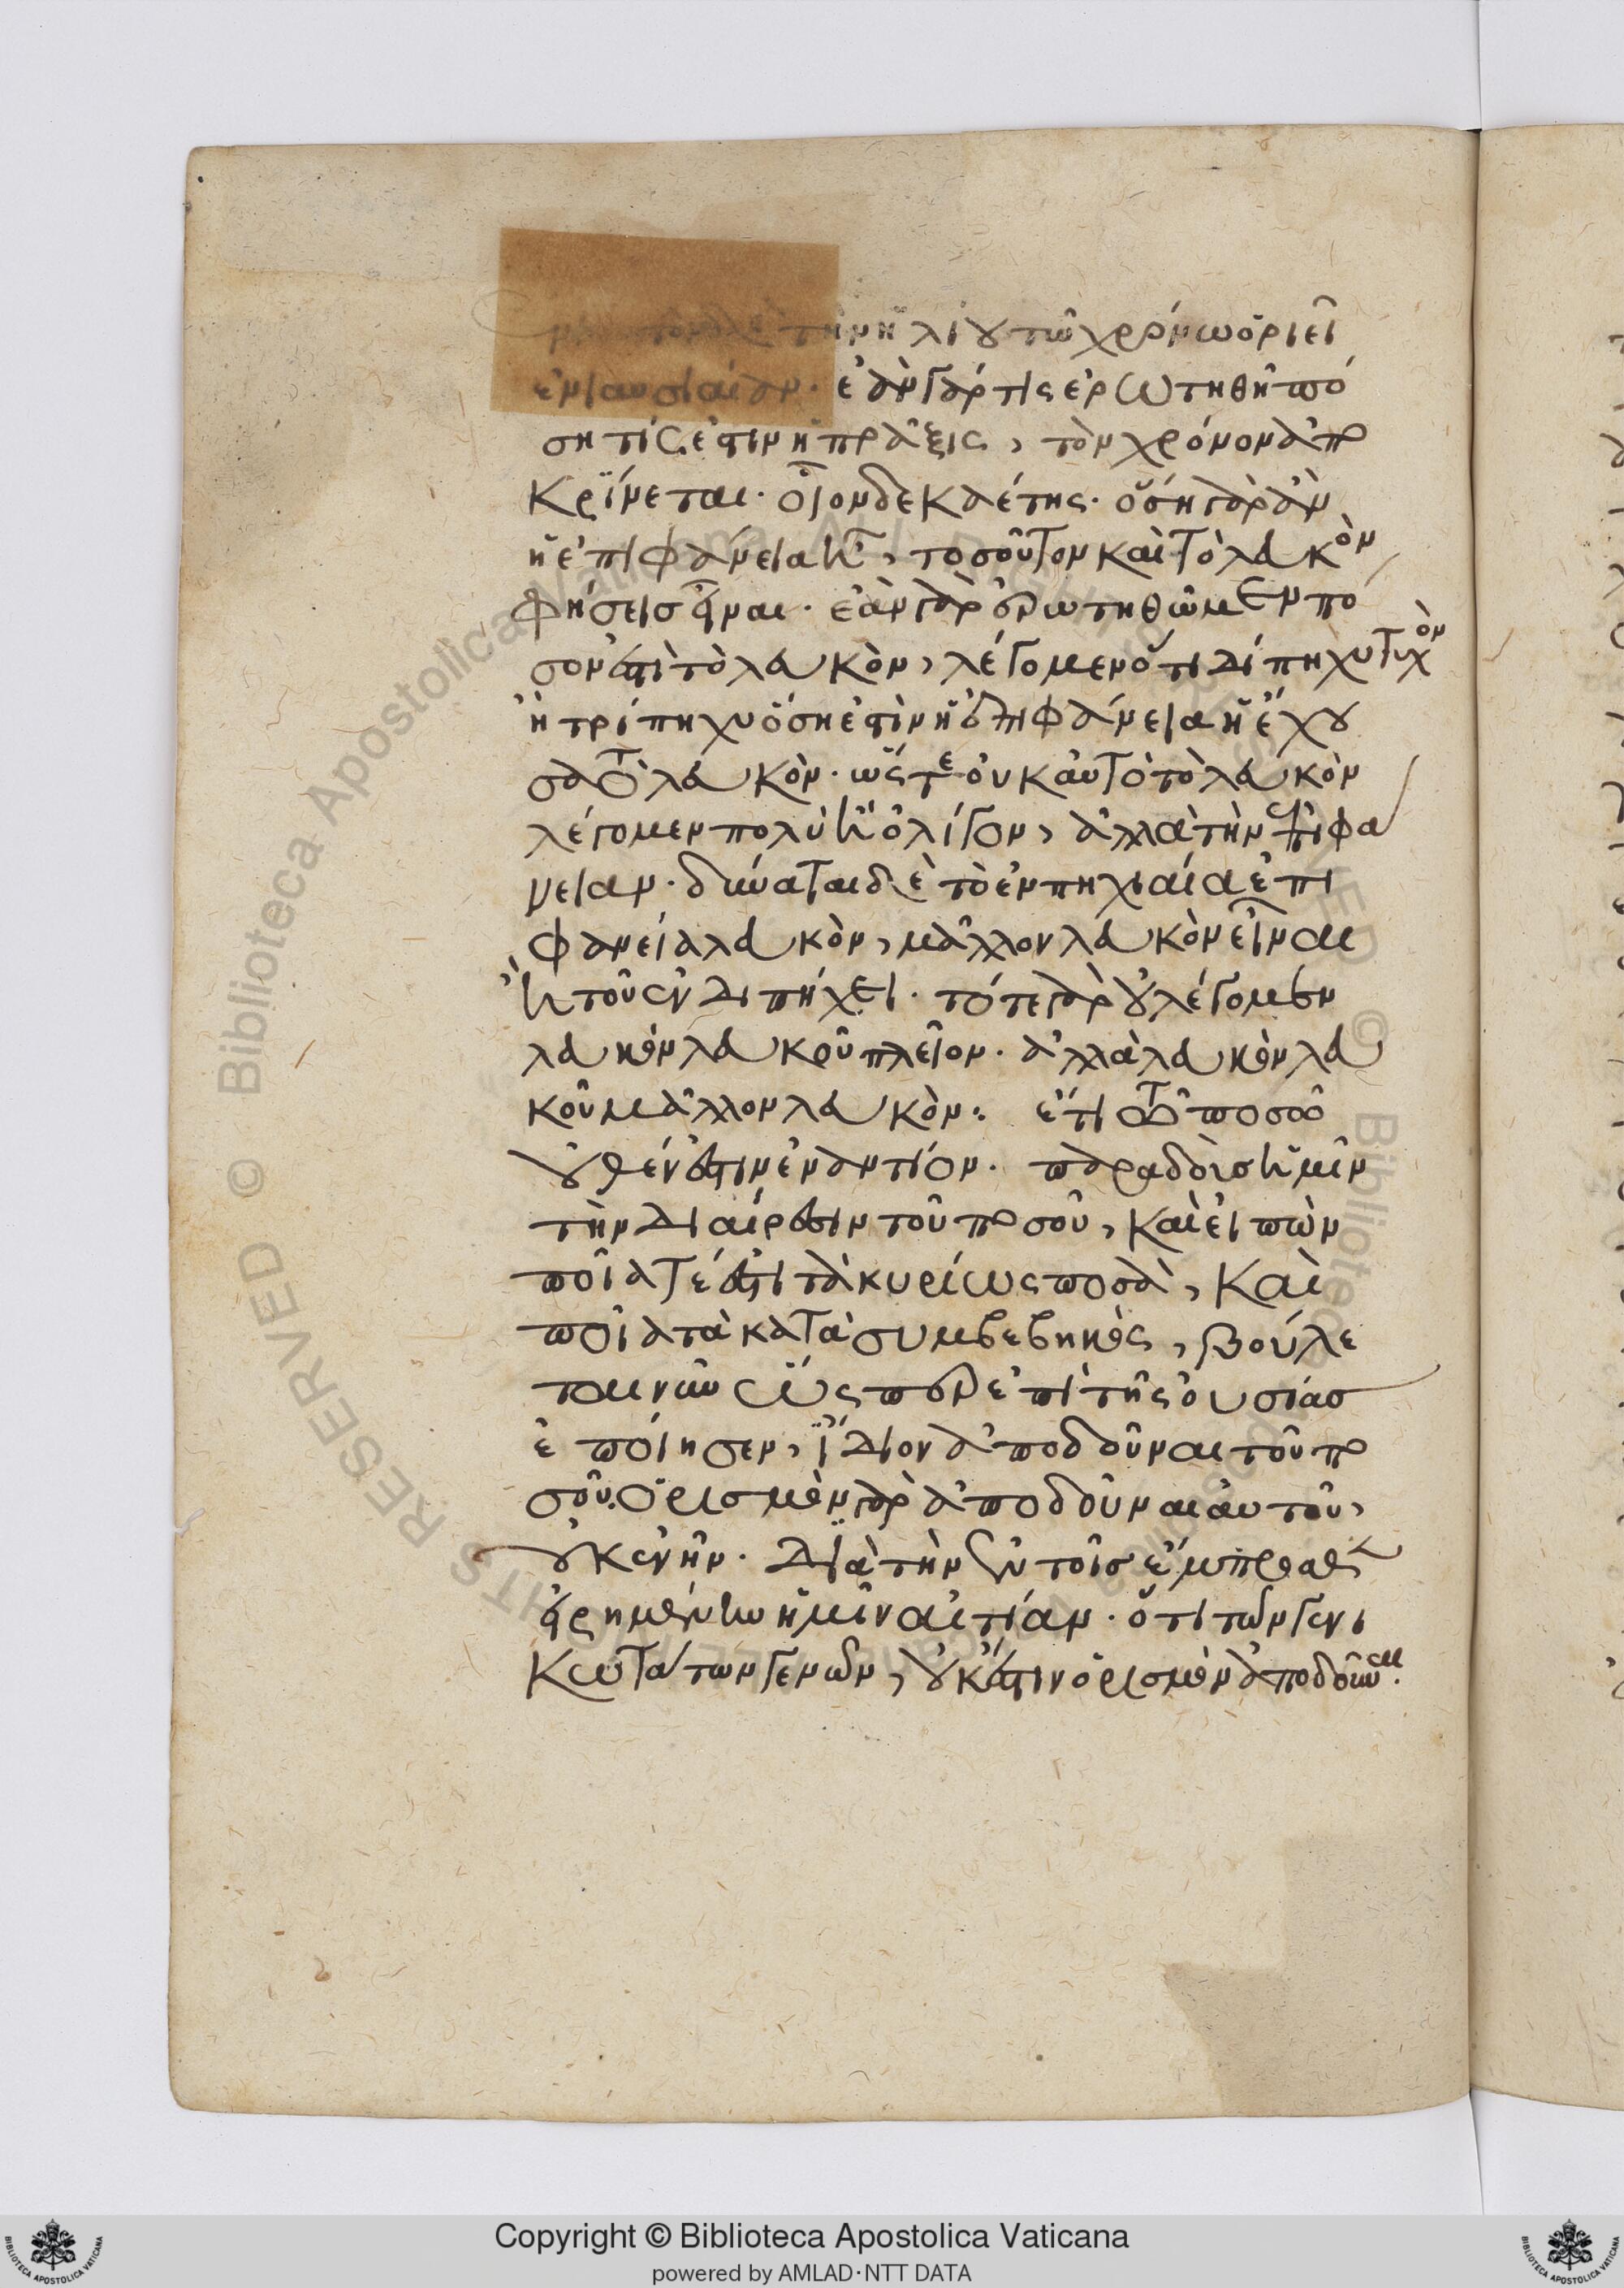 τὴν ἡλίου τῶ χρόνω ὁριεῖ
ἐνιαυσιαίαν· ἐὰν γάρ τις ἐρωτηθῆ πό
ση τίς ἐστιν ἡ πρᾶξις, τὸν χρόνον ἀπο
κρίνεται· οἷον δεκαέτης· ὅση γὰρ ἂν
ἡ ἐπιφάνεια ἦ, τοσοῦτον καὶ τὸ λευκὸν
φήσεις εἶναι· ἐὰν γὰρ ἐρωτηθῶμεν πό
σον ἐστὶ τὸ λευκὸν, λέγομεν ὅτι δίπηχυ τυχὸν
ἢ τρίπηχυ ὅση ἐστὶν ἡ ἐπιφάνεια ἡ ἔχου
σα τὸ λευκὸν· ὥστε οὐκ αὐτὸ τὸ λευκὸν
λέγομεν πολὺ ἢ ὀλίγον, ἀλλὰ τὴν ἐπιφά
νειαν· δύναται δὲ τὸ ἐν πηχιαία ἐπι
φανεία λευκὸν, μᾶλλον λευκὸν εἶναι
ἢ τοῦ ἐν διπήχει· τότε γὰρ οὐ λέγομεν
λευκὸν λευκοῦ πλεῖον· ἀλλὰ λευκὸν λευ
κοῦ μᾶλλον λευκὸν· ἔτι τῶ ποσῶ
οὐθέν ἐστιν ἐναντίον· παραδοὺς ἡμῖν
τὴν διαίρεσιν τοῦ ποσοῦ, καὶ εἰπὼν
ποῖά τέ ἐστι τὰ κυρίως ποσὰ, καὶ
ποῖα τὰ κατὰ συμβεβηκὸς, βούλε
ται νῦν ὥσπερ ἐπὶ τῆς οὐσίας
ἐποίησεν, ἴδιον ἀποδοῦναι τοῦ πο
σοῦ· ὁρισμὸν γὰρ ἀποδοῦναι αὐτοῦ,
οὐκ ἐνῆν· διὰ τὴν ἐν τοῖς ἔμπροσθεν
εἰρημένην ἡμῖν αἰτίαν· ὅτι τῶν γενι
κωτάτων γενῶν, οὐκ ἔστιν ὁρισμὸν ἀποδοῦναι·
Copyright © Biblioteca Apostolica Vaticana
powered by AMLAD·NTT DATA